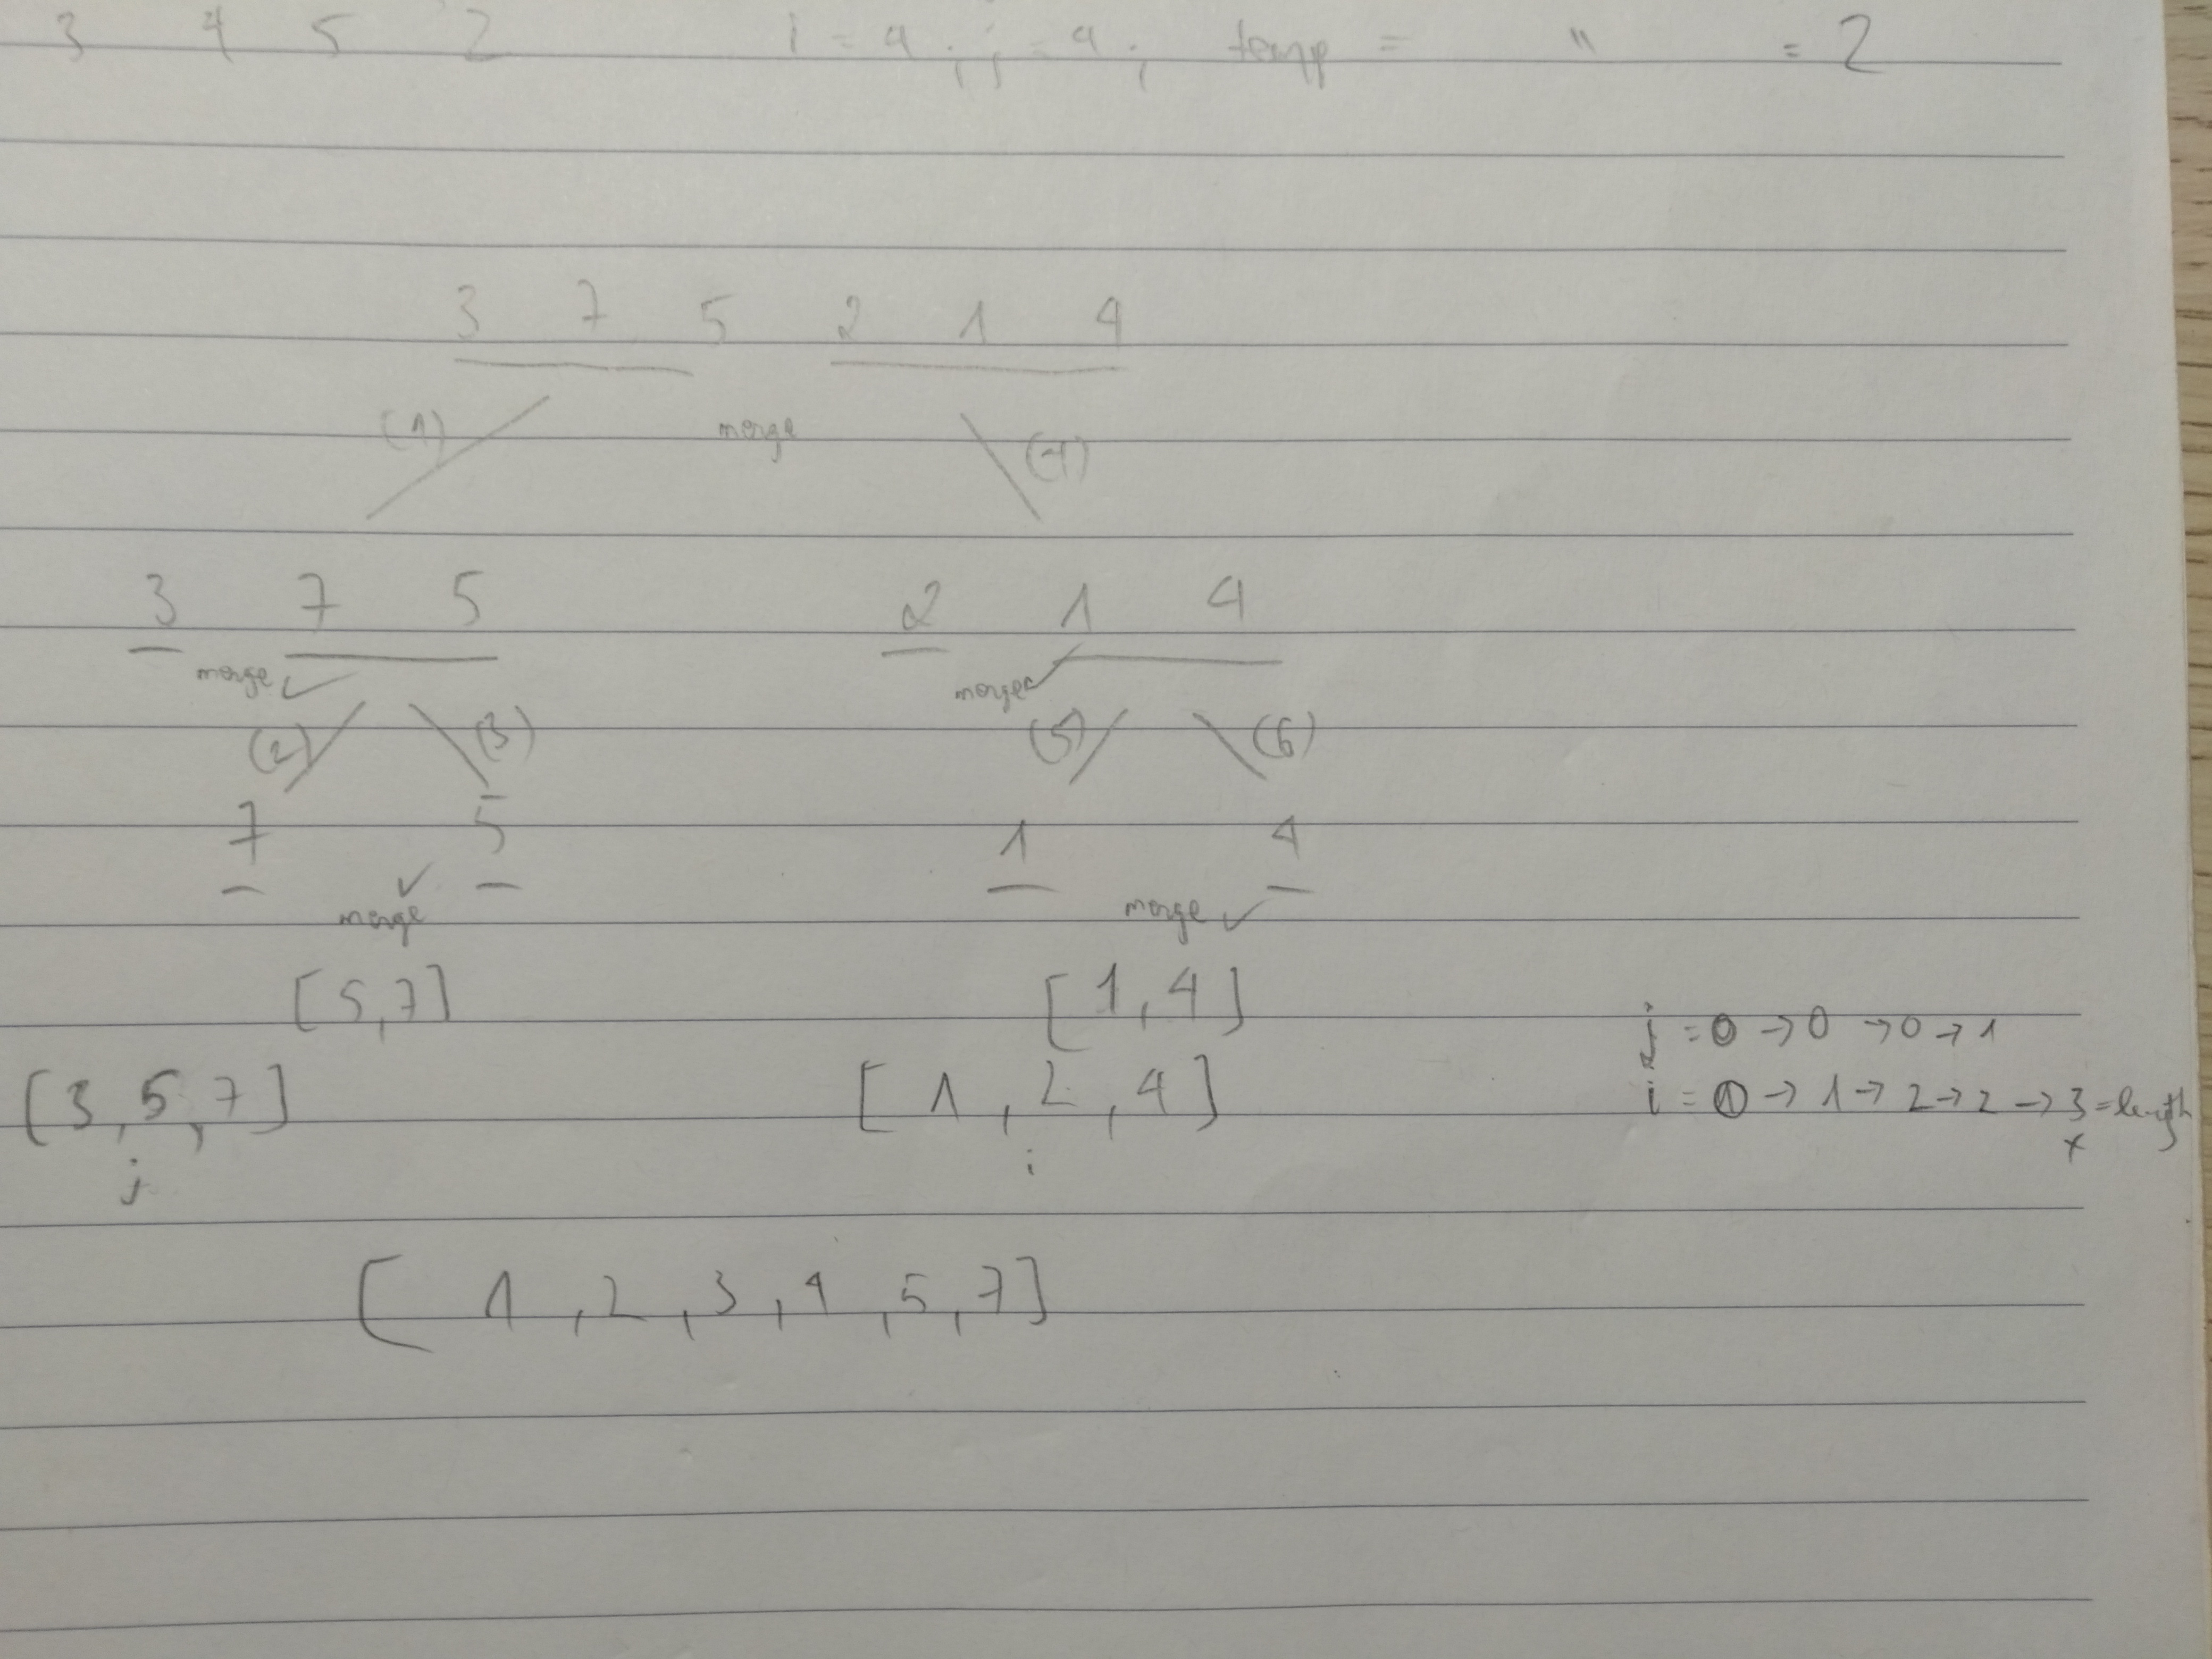 3 4 5 2 i = 4 ; j = 4 ; temp = " = 2
3 7 5 2 1 4
(1) merge (4)
3 7 5 2 1 4
merge ✓ merge ✓
(2) (3) (5) (6)
7 5 1 4
merge ✓ merge ✓
[5,7] [1,4]
j = 0 → 0 → 0 → 1
[3,5,7] [1,2,4] i = 0 → 1 → 2 → 2 → 3 = length
j i x
[1,2,3,4,5,7]